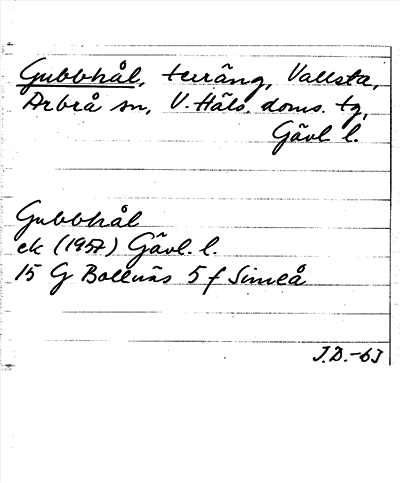 Gubbhål, terräng, Vallsta,
Arbrå sn, V. Häls. doms. tg,
Gävl. l.
Gubbhål
ek (1957) Gävl. l.
15 G Bollnäs 5 f Simeå
J.D.-63